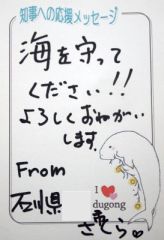 知事への応援メッセージ
海を守って
ください!!
よろしくおねがい
します。
From
石川県
I ❤
dugong
さくら♡